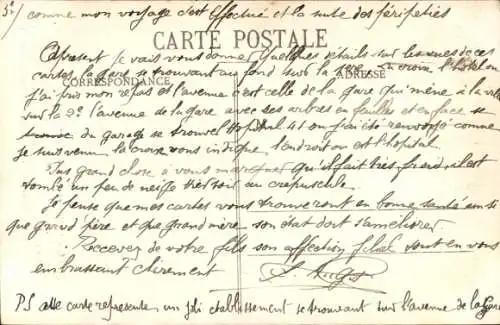 5e/ comme mon voyage s'est effectué et la suite des péripéties
CARTE POSTALE
Apresent je vais vous donner quelques détails sur les vues de ces
cartes la gare se trouvant au fond sur la 1ere l'hôtel ou
CORRESPONDANCE ADRESSE
j'ai pris mon repas et l'avenue c'est celle de la gare qui mène à la ville
sur la 2e l'avenue de la gare avec ses arbres en feuilles et en face se
du garage se trouve l'hôpital 41 ou j'ai été renvoyé comme
je suis venu la croix vous indique l'endroit ou est l'hopital.
Pas grand chose a vous marquer qu'il fait très froid, il est
tombé un peu de neige hier soir au crepuscule.
Je pense que mes cartes vous trouveront en bonne santé ainsi
que grand père et que grand mère son état doit s'améliorer.
Recevez de votre fils son affection filial tout en vous
embrassant chèrement
PS cette carte représente un joli etablissement se trouvant sur l'avenue de la Gare